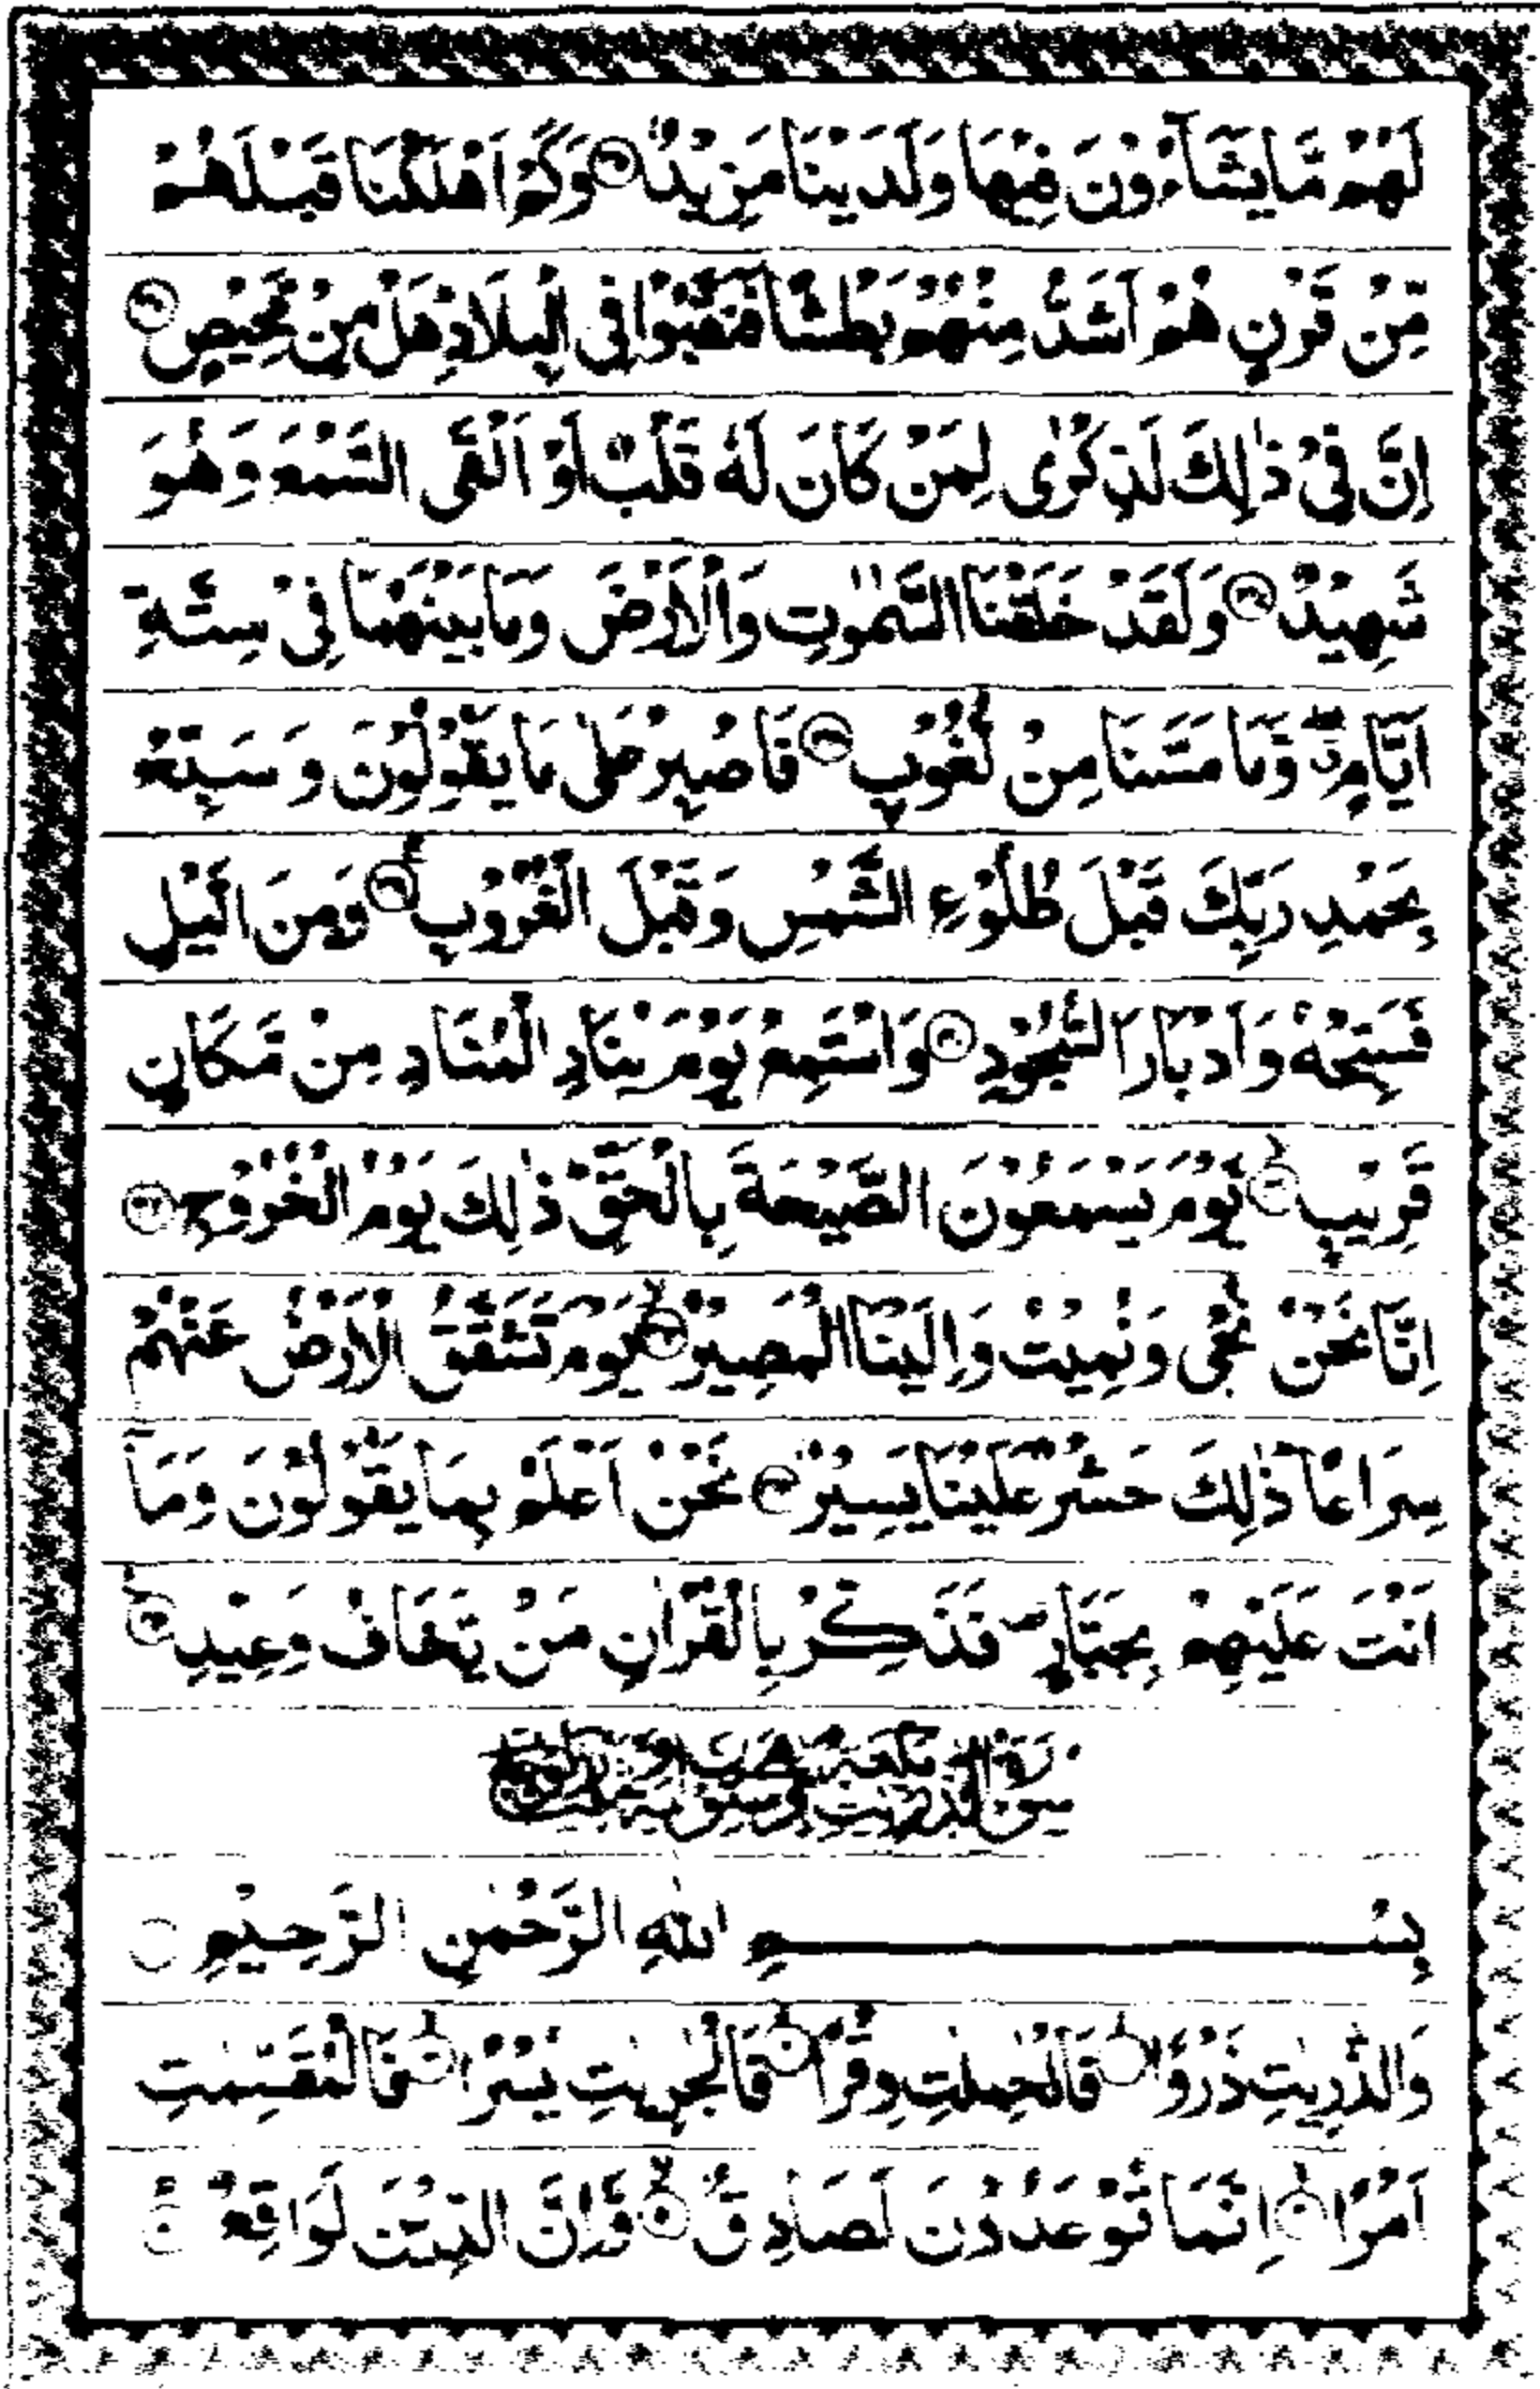 لَهُمْ مَّا يَشَآءُوْنَ فِيْهَا وَلَدَيْنَا مَزِيْدٌ ۝٣٥ وَكَمْ اَهْلَكْنَا قَبْلَهُمْ
مِّنْ قَرْنٍ هُمْ اَشَدُّ مِنْهُمْ بَطْشًا فَنَقَّبُوْا فِى الْبِلَادِ هَلْ مِنْ مَّحِيْصٍ ۝٣٦
اِنَّ فِىْ ذٰلِكَ لَذِكْرٰى لِمَنْ كَانَ لَهٗ قَلْبٌ اَوْ اَلْقَى السَّمْعَ وَهُوَ
شَهِيْدٌ ۝٣٧ وَلَقَدْ خَلَقْنَا السَّمٰوٰتِ وَالْاَرْضَ وَمَا بَيْنَهُمَا فِىْ سِتَّةِ
اَيَّامٍ ۖ وَّمَا مَسَّنَا مِنْ لُّغُوْبٍ ۝٣٨ فَاصْبِرْ عَلٰى مَا يَقُوْلُوْنَ وَ سَبِّحْ
بِحَمْدِ رَبِّكَ قَبْلَ طُلُوْعِ الشَّمْسِ وَقَبْلَ الْغُرُوْبِ ۝٣٩ وَمِنَ الَّيْلِ
فَسَبِّحْهُ وَاَدْبَارَ السُّجُوْدِ ۝٤٠ وَاسْتَمِعْ يَوْمَ يُنَادِ الْمُنَادِ مِنْ مَّكَانٍ
قَرِيْبٍ ۝٤١ يَّوْمَ يَسْمَعُوْنَ الصَّيْحَةَ بِالْحَقِّ ذٰلِكَ يَوْمُ الْخُرُوْجِ ۝٤٢
اِنَّا نَحْنُ نُحْىٖ وَنُمِيْتُ وَاِلَيْنَا الْمَصِيْرُ ۝٤٣ يَوْمَ تَشَقَّقُ الْاَرْضُ عَنْهُمْ
سِرَاعًا ذٰلِكَ حَشْرٌ عَلَيْنَا يَسِيْرٌ ۝٤٤ نَحْنُ اَعْلَمُ بِمَا يَقُوْلُوْنَ وَمَآ
اَنْتَ عَلَيْهِمْ بِجَبَّارٍ فَذَكِّرْ بِالْقُرْاٰنِ مَنْ يَّخَافُ وَعِيْدِ ۝٤٥
بِسْمِ اللّٰهِ الرَّحْمٰنِ الرَّحِيْمِ
وَالذّٰرِيٰتِ ذَرْوًا ۝١ فَالْحٰمِلٰتِ وِقْرًا ۝٢ فَالْجٰرِيٰتِ يُسْرًا ۝٣ فَالْمُقَسِّمٰتِ
اَمْرًا ۝٤ اِنَّمَا تُوْعَدُوْنَ لَصَادِقٌ ۝٥ وَّاِنَّ الدِّيْنَ لَوَاقِعٌ ۝٦